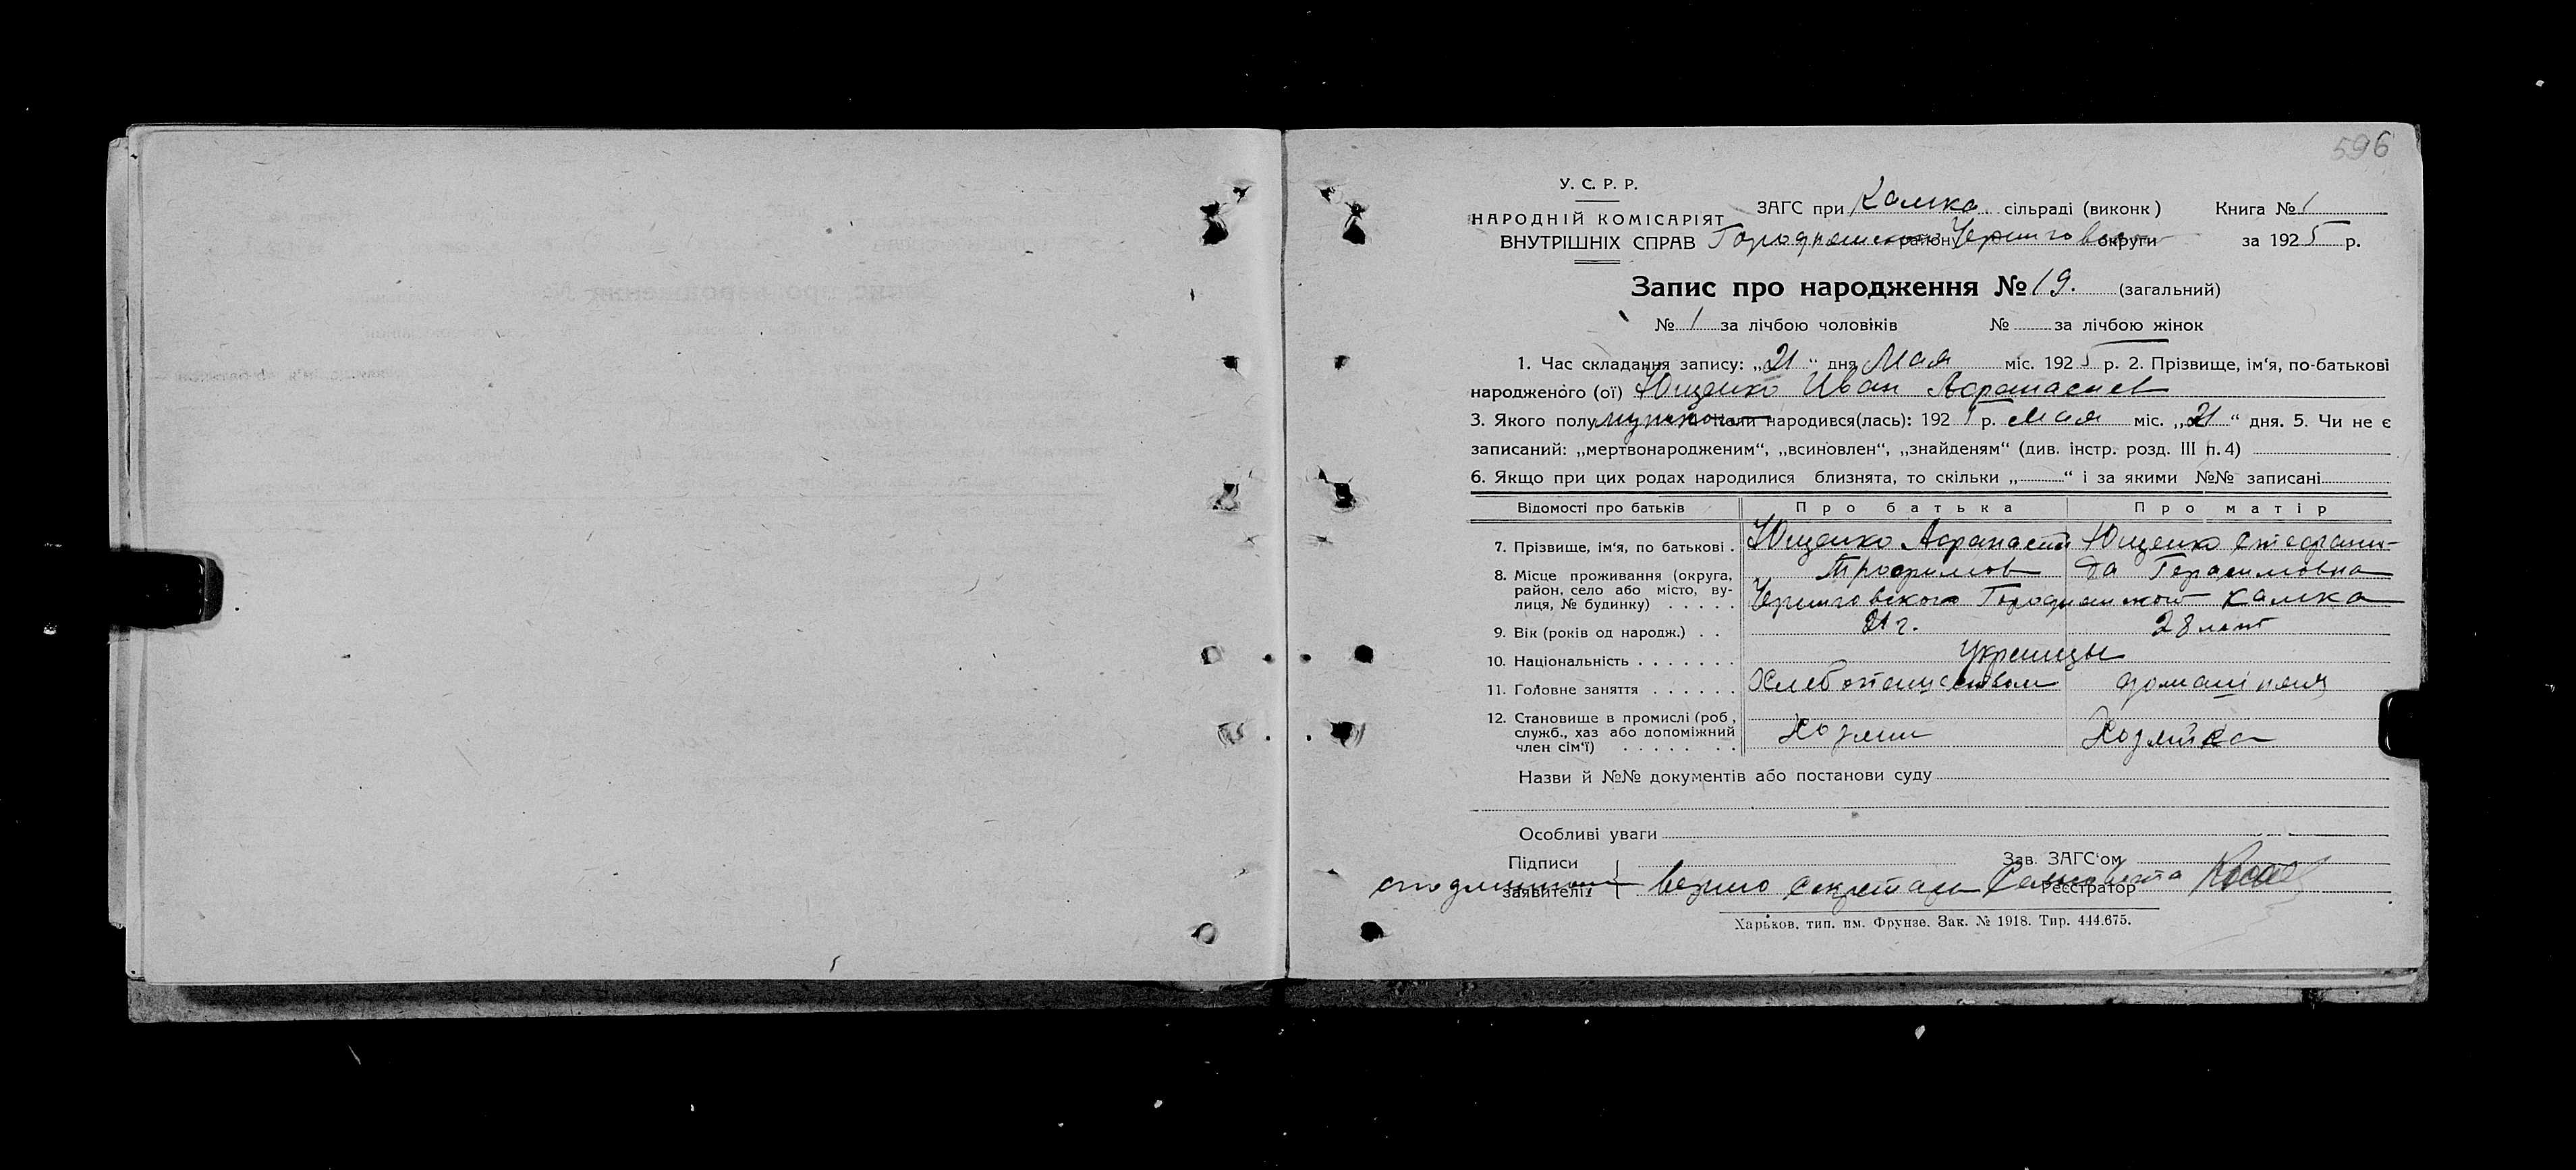 596
У. С. Р. Р.
НАРОДНІЙ КОМІСАРІЯТ
ВНУТРІШНІХ СПРАВ
ЗАГС при Камка сільраді (виконк)
Городнянского район Черниговской округи
Книга № 1
за 1925 р.
Запис про народження № 19. (загальний)
№ 1 за лічбою чоловіків № за лічбою жінок
1. Час складання запису: „21“ дня Мая міс. 1925 р. 2. Прізвище, ім‘я, по-батькові
народженого (ої) Ющенко Иван Афанасиев
3. Якого полу мужского Коли народився(лась): 1925 р. Мая міс. „21“ дня. 5. Чи не є
записаний: „мертвонародженим“, „всиновлен“, „знайденям“ (див. інстр. розд. III п. 4)
6. Якщо при цих родах народилися близнята, то скільки „ “ і за якими №№ записані
Відомості про батьків Про батька Про матір
7. Прізвище, ім‘я, по батькові . Ющенко Афанасий Ющенко Степани-
Трофимов да Герасимовна
8. Місце проживання (округа,
район, село або місто, ву-
лиця, № будинку) . . . . . Черниговского Городнянской Камка
9. Вік (років од народж.) . . 21 г. 28 лет
10. Національність . . . . . . . Украинцы
11. Головне заняття . . . . . . Хлебопашеством
12. Становище в промислі (роб,
служб., хаз або допоміжний
член сім‘ї) . . . . . . . Хозяин Хозяйка
Назви й №№ документів або постанови суду
Особливі уваги
Підписи
заявителі:
Зав. ЗАГС‘ом
Реєстратор
с подлинным верно Секретарь Сельсовета
Харьков, тип. им. Фрунзе. Зак. № 1918. Тир. 444.675.